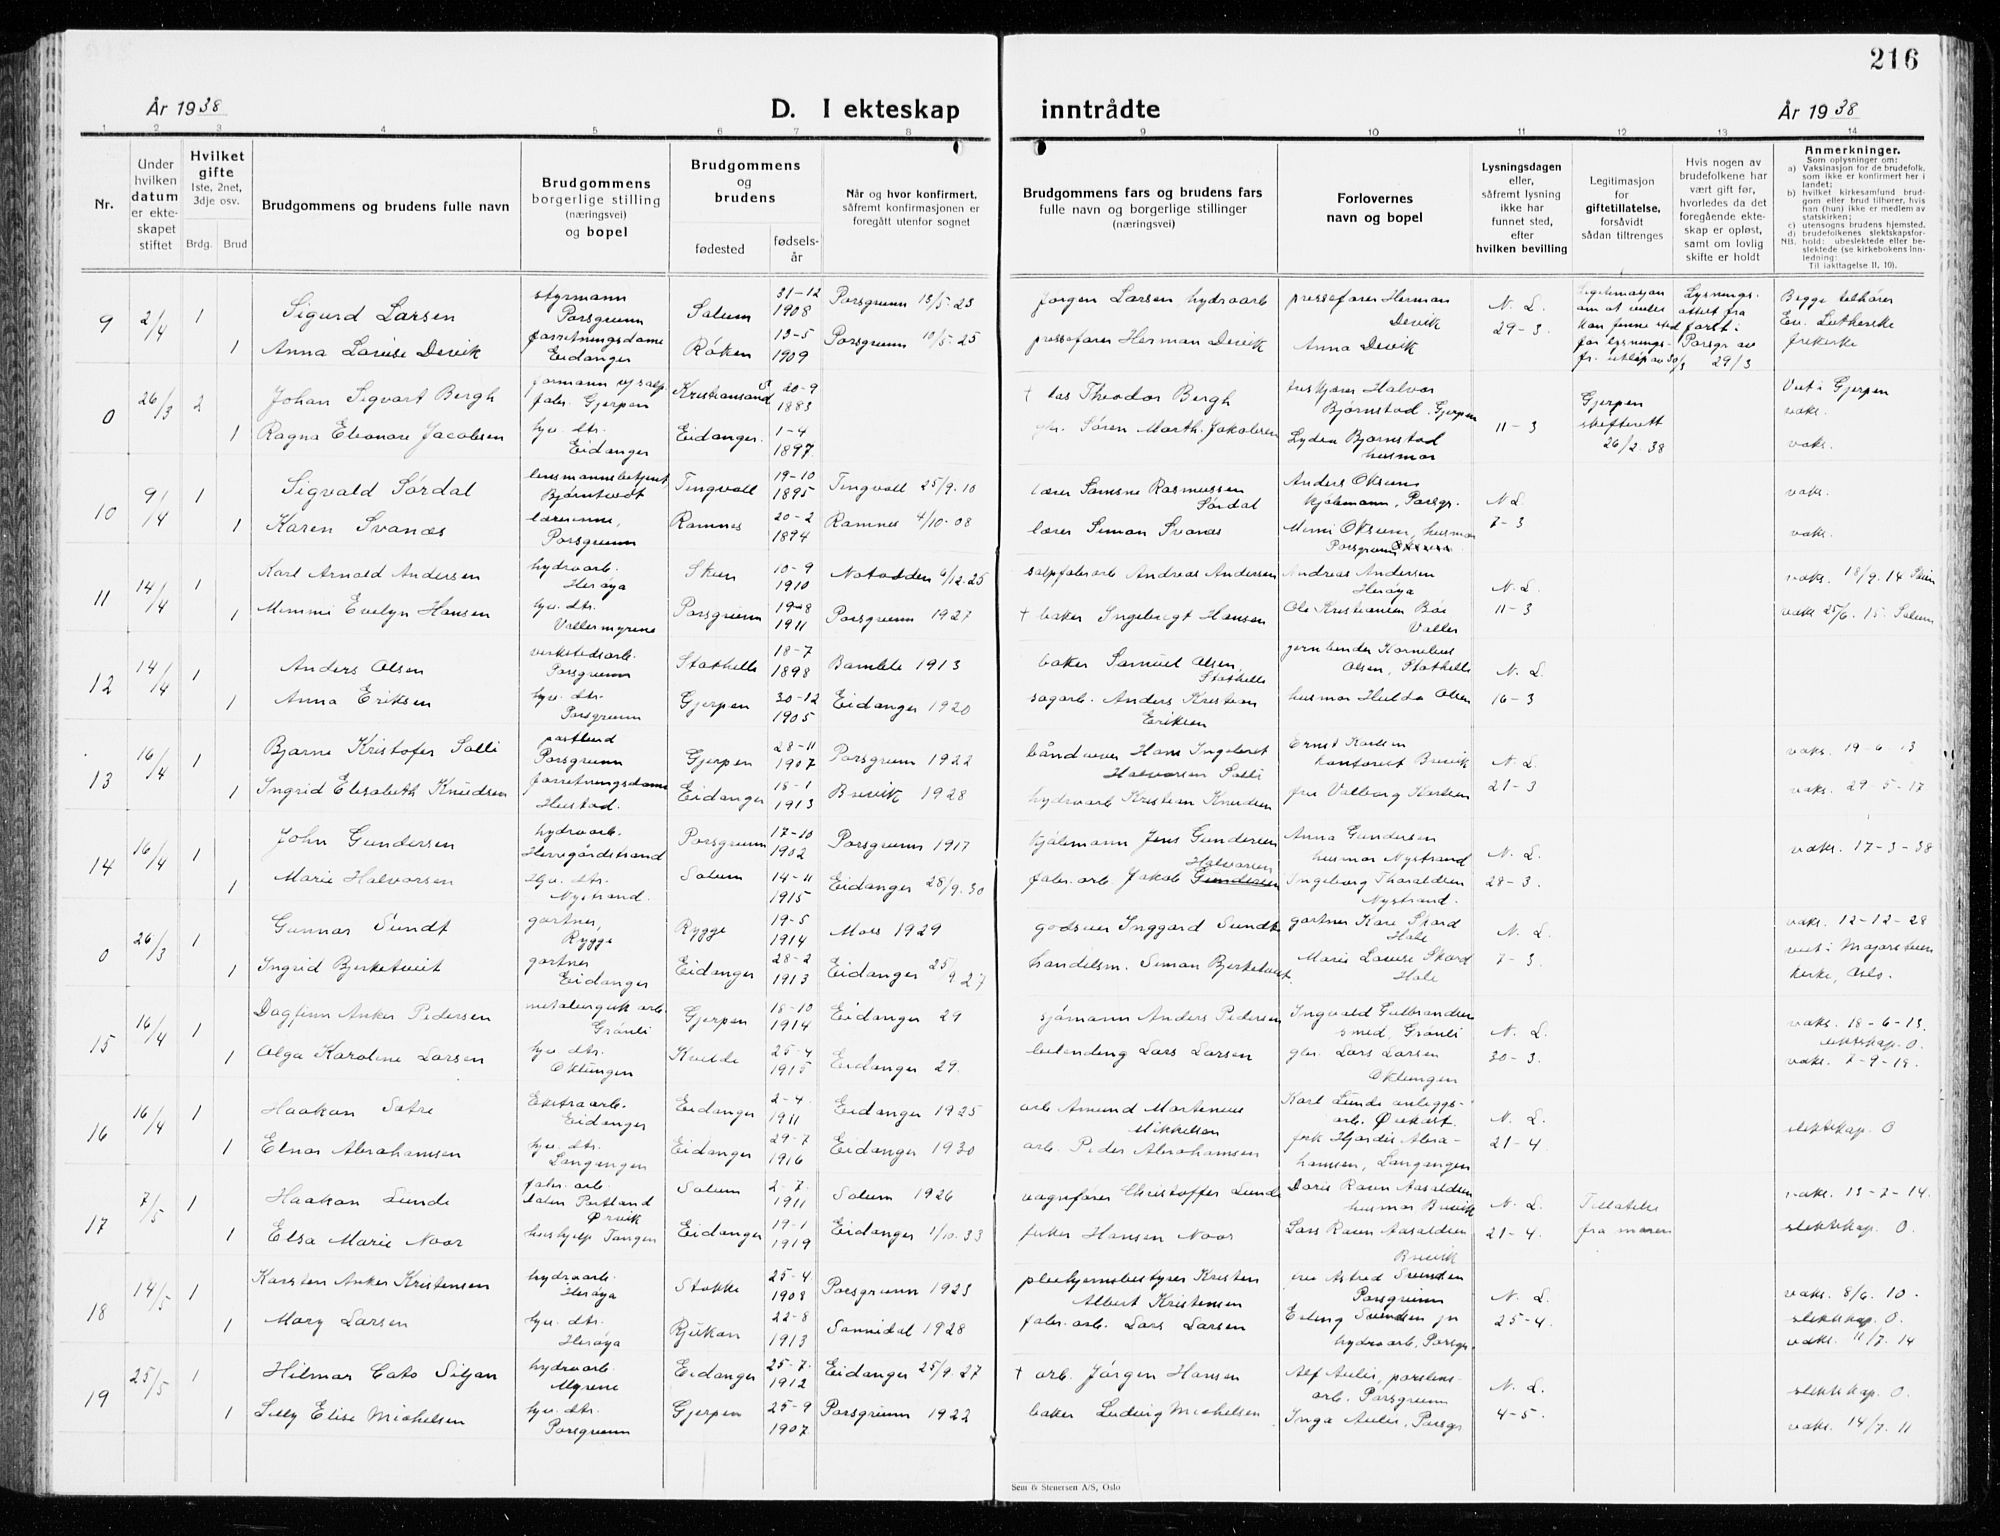 216
År 1938
D. I ekteskap inntrådte
År 1938
1 2 3 4 5 6 7 8 9 10 11 12 13 14
Nr.
Under hvilken datum er ekteskapet stiftet
Hvilket gifte 1ste, 2net, 3dje osv.
Brdg. Brud
Brudgommens og brudens fulle navn
Brudgommens borgerlige stilling (næringsvei) og bopel
Brudgommens og brudens
fødested
fødsels-år
Når og hvor konfirmert, såfremt konfirmasjonen er foregått utenfor sognet
Brudgommens fars og brudens fars fulle navn og borgerlige stillinger (næringsvei)
Forlovernes navn og bopel
Lysningsdagen eller, såfremt lysning ikke har funnet sted, efter hvilken bevilling
Legitimasjon for giftetillatelse, forsåvidt sådan tiltrenges
Hvis nogen av brudefolkene har vært gift før, hvorledes da det foregående ekteskap er opløst, samt om lovlig skifte er holdt
Anmerkninger.
Som oplysninger om:
a) Vaksinasjon for de brudefolk, som ikke er konfirmert her i landet;
b) hvilket kirkesamfund brudgom eller brud tilhører, hvis han (hun) ikke er medlem av statskirken;
c) utensogns brudens hjemsted.
d) brudefolkenes slektskapsforhold: ubeslektede eller beslektede (se kirkebokens innledning:
NB. Til iakttagelse II, 10).
9 2/4 1 Sigurd Larsen styrmann Porsgrunn Solum 31-12 1908 Porsgrunn 13/5-23 Jørgen Larsen hydroarb pressefører Herman Devik N. L. 29-3. Begge tilhører Ev. Lutherske frikirke
1 Anna Lovise Devik forretningsdame Eidanger Røken 13-5 1909 Porsgrunn 10/5-25 pressefører Herman Devik Anna Devik
0 26/3 2 Johan Sigvart Bergh formann v/ salp. fabr. Gjerpen Kristiansand S 20-9 1883 † los Theodor Bergh Halvor Bjørnstad, Gjerpen 11-3 Gjerpen skifterett 26/2.38 Viet i Gjerpen vaks.
1 Ragna Eleonore Jacobsen hjv. dtr. Eidanger Eidanger. 1-4 1897. gbr. Søren Marth. Jakobsen Lydia Bjørnstad husmor vaks.
10 9/4 1 Sigvald Sørdal lensmannsbetjent Bjørntvedt Tingvoll 19-10 1895 Tingvoll 25/9.10 lærer Samsne Rasmussen Sørdal Anders Oksum kjølemann, Porsgr. N. L. 7-3 vaks.
1 Karen Svanæs lærerinne, Porsgrunn Ramnes 20-2 1894 Ramnes 4/10-08 lærer Simon Svanæs Mimi Oksum, husmor Porsgrunn vaks.
11 14/4 1 Karl Arnold Andersen hydroarb. Herøya Skien 10-9 1910 Notodden 6/12.25 salpfabrarb Andreas Andersen Andreas Andersen Herøya N. L. 11-3 vaks. 18/9.14 Skien
1 Mimmi Evelyn Hansen hjv. dtr. Vallermyrene Porsgrunn 19-8 1911 Porsgrunn 1927 † baker Ingebregt Hansen Ole Kristiansen Bøe Valler vaks 25/6.15. Solum
12 14/4 1 Anders Olsen verkstedsarb. Porsgrunn Stathelle 18-7 1898 Bamble 1913 baker Samuel Olsen, Stathelle jernbinder Kornelius Olsen, Stathelle N. L. 16-3
1 Anna Eriksen hjv. dtr. Porsgrunn Gjerpen 30-12 1905 Eidanger 1920 sagarb. Anders Kristian Eriksen husmor Hulda Olsen
13 16/4 1 Bjarne Kristofer Solli postbud Porsgrunn Gjerpen 28-11 1907 Porsgrunn 1922 Hans Ingebret Halvorsen Solli Ernst Karlsen kontorist Brevik N. L. 21-3 vaks. 19-6-13
1 Ingrid Elisabeth Knudsen forretningsdame Heistad. Eidanger 18-1 1913 Brevik 1928 hydroarb Kristian Knudsen fru Valborg Karlsen vaks. 29-5-17
14 16/4 1 John Gundersen hydroarb. Herregårdstrand Porsgrunn 17-10 1902 Porsgrunn 1917 kjølemann Jens Gundersen Anna Gundersen husmor Nystrand N. L. 28-3. vaks. 17-3-38
1 Marie Halvorsen hjv. dtr. Nystrand. Solum 14-11 1915 Eidanger 28/9.30 fabr. arb. Jakob Gundersen Halvorsen Ingeborg Thoraldsen Nystrand.
0 26/3 1 Gunnar Sundt gartner, Rygge Rygge 19-5 1914 Moss 1929 godseier Inggard Sundt gartner Kåre Skard Hole N. L. 7-3. vaks. 12-12-28
1 Ingrid Bjerketveit gartner Eidanger Eidanger 28-2 1913 Eidanger 25/9 27 handelsm. Simon Bjerketveit. Marie Louise Skard Hole viet i Majorstuen kirke, Oslo.
15 16/4 1 Dagfinn Anker Pedersen metalurgisk arb. Grønli Gjerpen 18-10 1914 Eidanger 29 sjømann Anders Pedersen Ingvald Gulbrandsen smed, Grønli N. L. 30-3. vaks. 18-6-13. slektskap. 0.
1 Olga Karoline Larsen hjv. dtr. Oklungen Kvelde 25-4 1915 Eidanger 29. Lars Larsen gbr. Lars Larsen Oklungen vaks. 7-9-19.
16 16/4 1 Haakon Sätre Ekstraarb. Eidanger Eidanger 2-4. 1911 Eidanger 1925 arb Amund Martinius Mikkelsen Karl Lunde anleggs-arb. N. L. 21-4 slektskap. 0
1 Elnor Abrahamsen hjv. dtr. Langangen Eidanger 29-7 1916 Eidanger 1930 arb. Peder Abrahamsen frk Hjørdis Abrahamsen, Langangen
17 7/5 1 Haakon Lunde fabr. arb. Dalen Portland Ørvik Solum 2-7. 1911 Solum 1926 vognfører Christoffer Lunde Doris Ravn Aasoldsen husmor Brevik N. L. 21-4. Tillatelse fra moren vaks. 13-7-14.
1 Elsa Marie Noor hushjelp Tangen Eidanger 19-1 1919 Eidanger 1/10.33 fisker Hansen Noor Lars Ravn Aasoldsen Brevik slektskap. 0.
18 14/5 1 Karsten Anker Kristensen hydroarb. Herøya Stokke 25-4 1908 Porsgrunn 1923 pleiehjemsbestyrer Kristen Albert Kristensen fru Astrid Svendsen Porsgrunn N. L. 25-4. vaks. 8/6.10.
1 Mary Larsen hjv. dtr. Herøya Rjukan 22-8 1913 Sannidal 1928 fabr. arb. Lars Larsen Erling Svendsen jr hydroarb, Porsgr. slektskap. 0. vaks. 11/7.14
19 25/5 1 Hilmar Cato Siljan hydroarb. Myrene Eidanger 25-7. 1912 Eidanger 25/9.27 † arb. Jørgen Hansen Alf Aulie, porslens-arb. Porsgrunn N. L. 4-5. slektskap. 0.
1 Lilly Elise Michelsen hjv. dtr. Porsgrunn Gjerpen 25-9 1907 Porsgrunn 1922 baker Ludvig Michelsen Inga Aulie, Porsgr vaks. 14/7.11
Sem & Stenersen A/S, Oslo